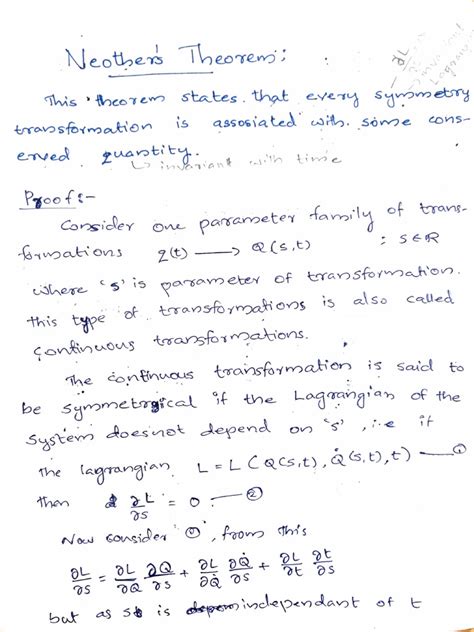 ∂L
invariant
Lagrang
Neother's Theorem:
This theorem states that every symmetry
transformation is assosiated with some cons-
erved quantity.
↳ invariant with time
Proof:-
Consider one parameter family of trans-
formations q(t) ⟶ Q(s,t) : s∈R
where 's' is parameter of transformation.
this type of transformations is also called
continuous transformations.
The continuous transformation is said to
be symmetrgical if the Lagrangian of the
system doesnot depend on 's', i.e if
the lagrangian L = L(Q(s,t), Q̇(s,t), t) — ①
then ∂L/∂s = 0. — ②
Now consider ①, from this
∂L/∂s = ∂L/∂Q ∂Q/∂s + ∂L/∂Q̇ ∂Q̇/∂s + ∂L/∂t ∂t/∂s
but as s is independant of t